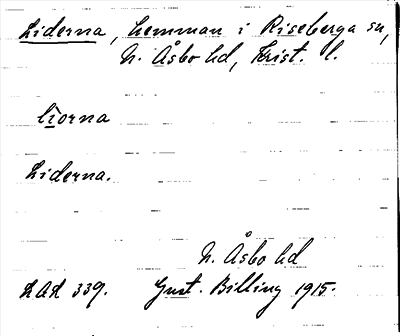 Liderna, hemman i Riseberga sn,
N. Åsbo hd, Krist. l.
liorna
Liderna.
N. Åsbo hd
LAL 339. Gust. Billing 1915.